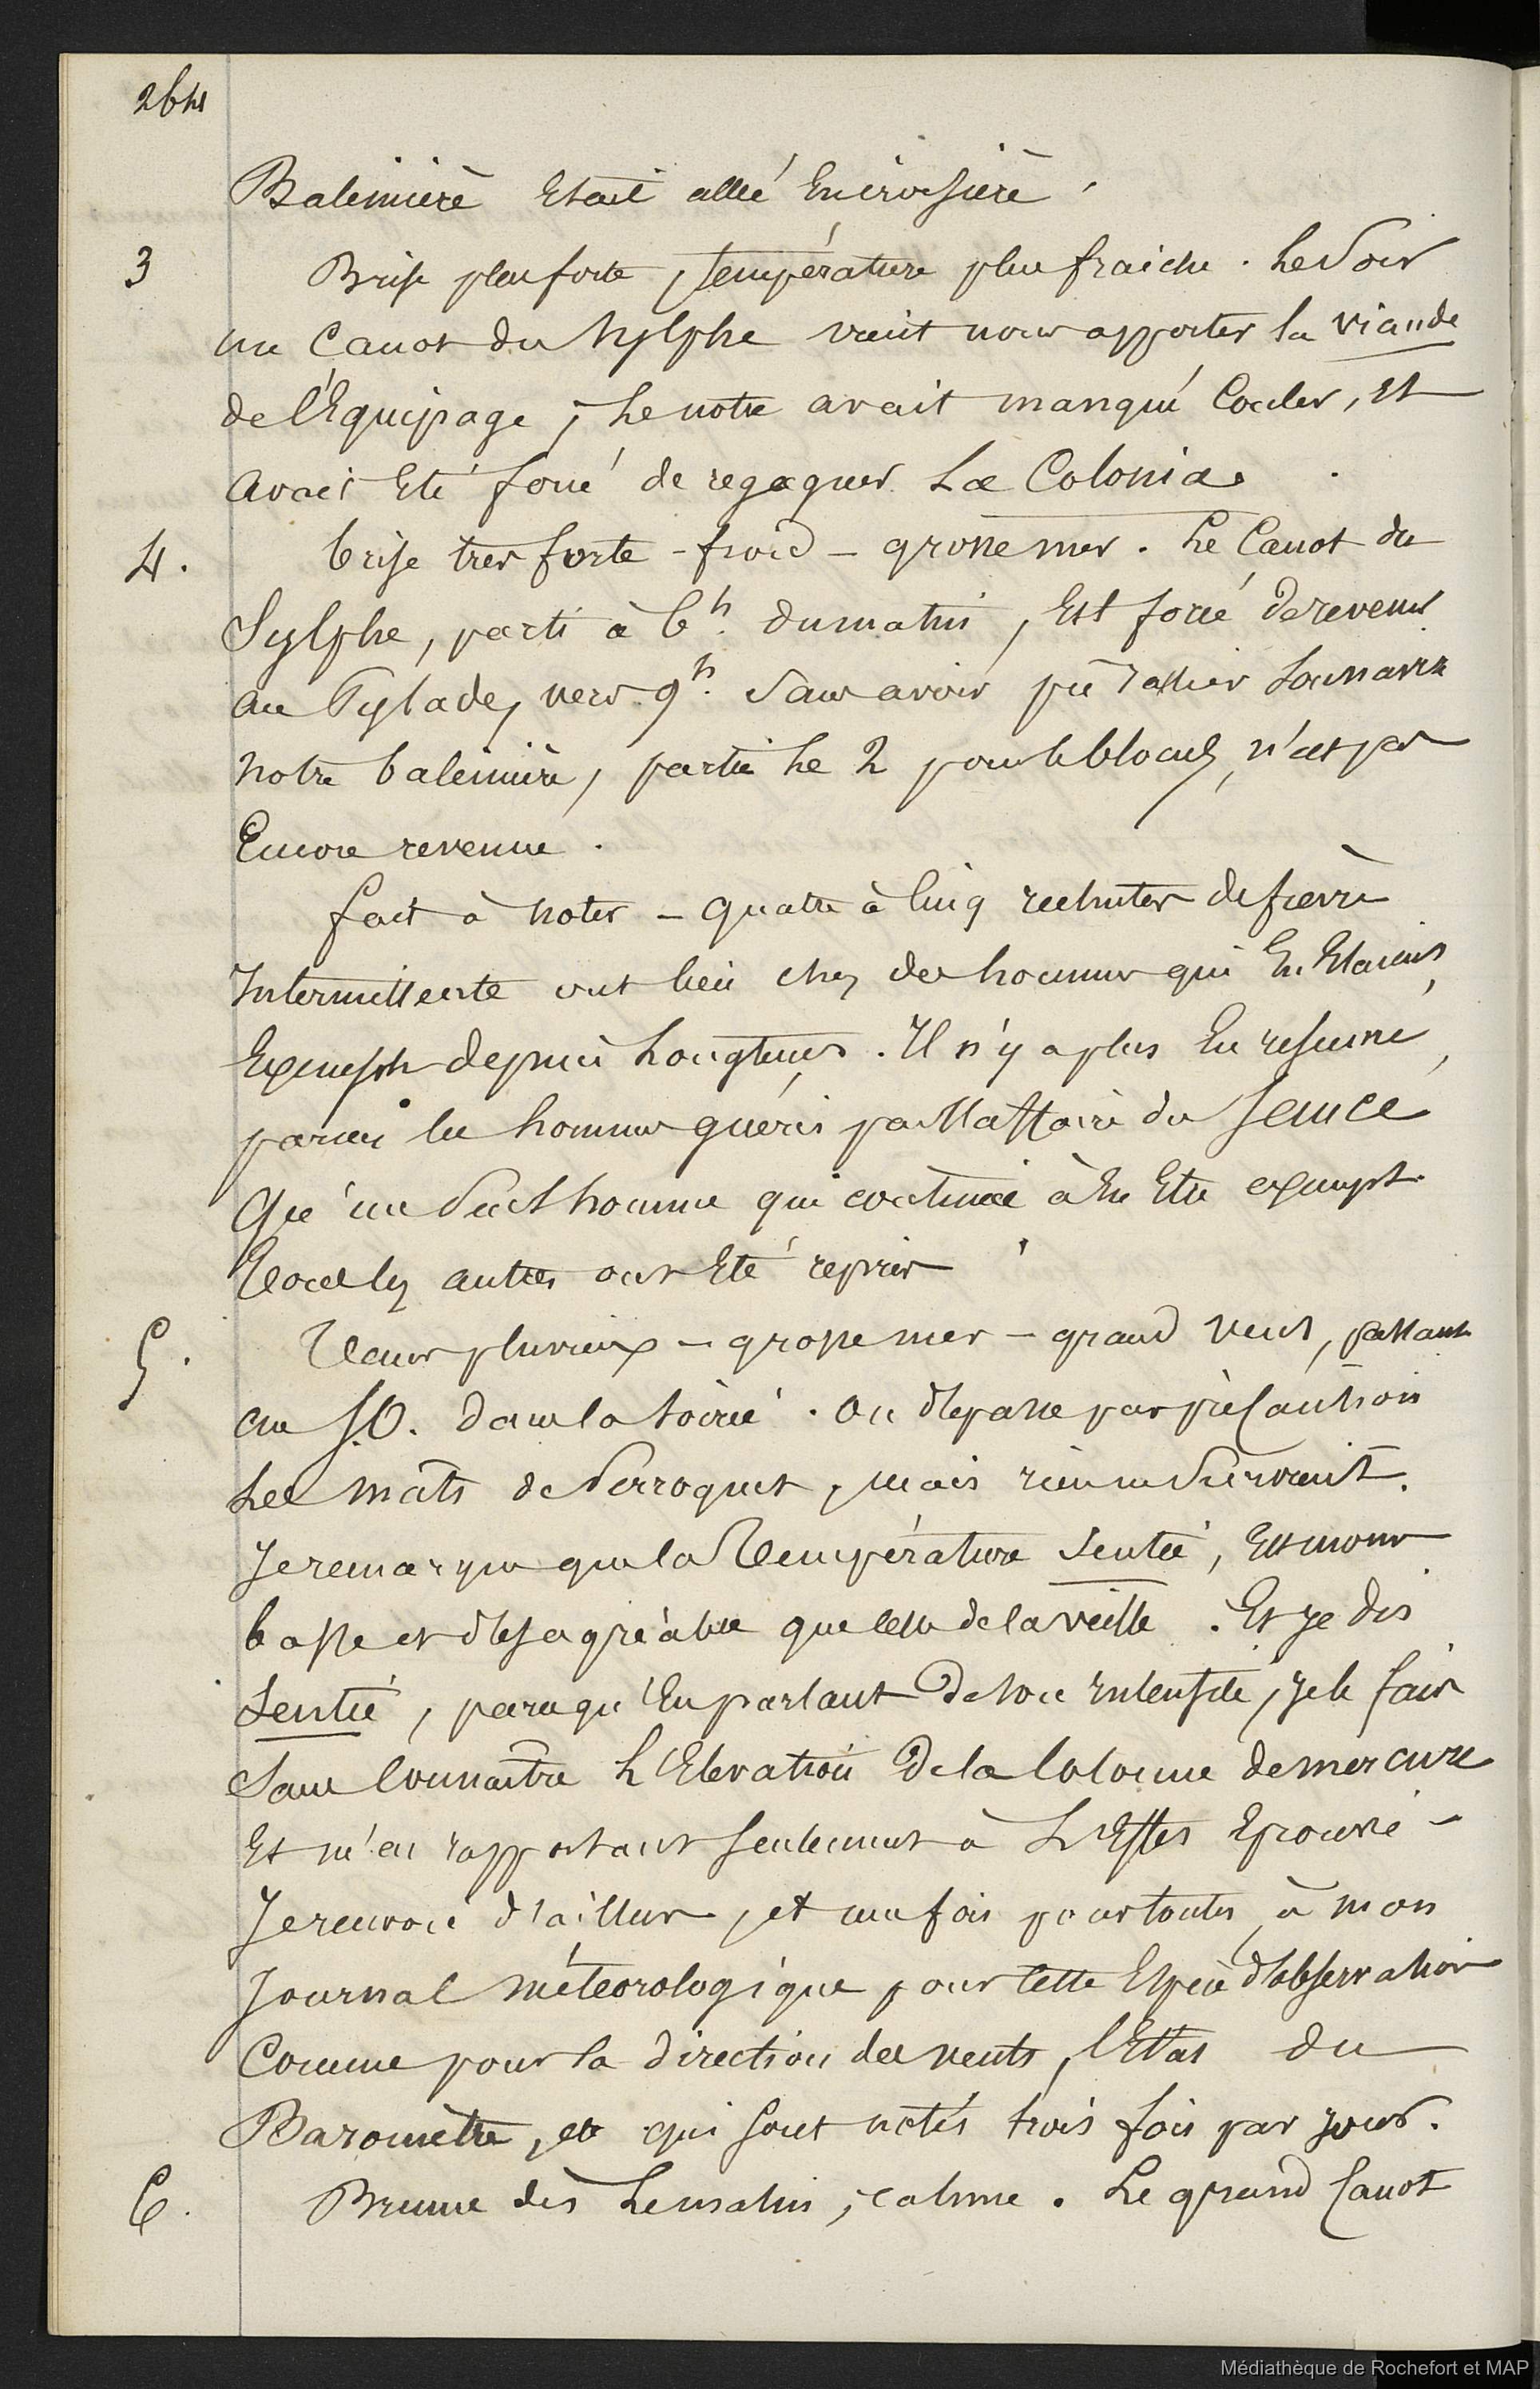 264
Baleinière Etait allée En croisière.
3 Brise plus forte, température plus fraiche. Le Soir
un Canot du Sylphe vient nous apporter la viande
de l'Equipage; le notre avait manqué Couler, et
avait Eté forcé de regagner La Colonia.
4. brise tres forte - froid - grosse mer. Le Canot du
Sylphe, parti à 6h. du matin, Est forcé de revenir
au Pylade, vers 9h. Sans avoir pu rallier Son navire
notre baleinière, partie le 2 pour le blocus, n'est pas
Encore revenue.
fait à noter - quatre à Cinq rechutes de fievre
Intermittente ont lieu chez des hommes qui En Etaient,
Exempts depuis Longtems. Il n'y a plus En résumé,
parmi les hommes guéris par l'affaire du
Qu'un Seul homme qui continue à En Etre exempt.
Tous les autres ont Eté repris.
5. Tems pluvieux - grosse mer - grand vent, passant
au S.O. dans la soirée. On dépasse par précaution
Les mâts de Perroquet, mais rien ne Survient.
Je remarque que la Température Sentie, Est moins
basse et désagréable que celle de la veille. Et je dis
Sentie, parce qu'En parlant de son intensité, je le fais
Sans Connaître L'Elevation de la Colonne de mercure
Et m'en rapportant Seulement à L'Effet Eprouvé -
Je renvoie d'ailleurs, et une fois pour toutes, à mon
Journal météorologique pour Cette Espèce d'observation
Comme pour la direction des vents, l'Etat du
Baromètre, et qui Sont notés trois fois par jour.
6. Brume dès Le matin, calme. Le grand Canot
Médiathèque de Rochefort et MAP